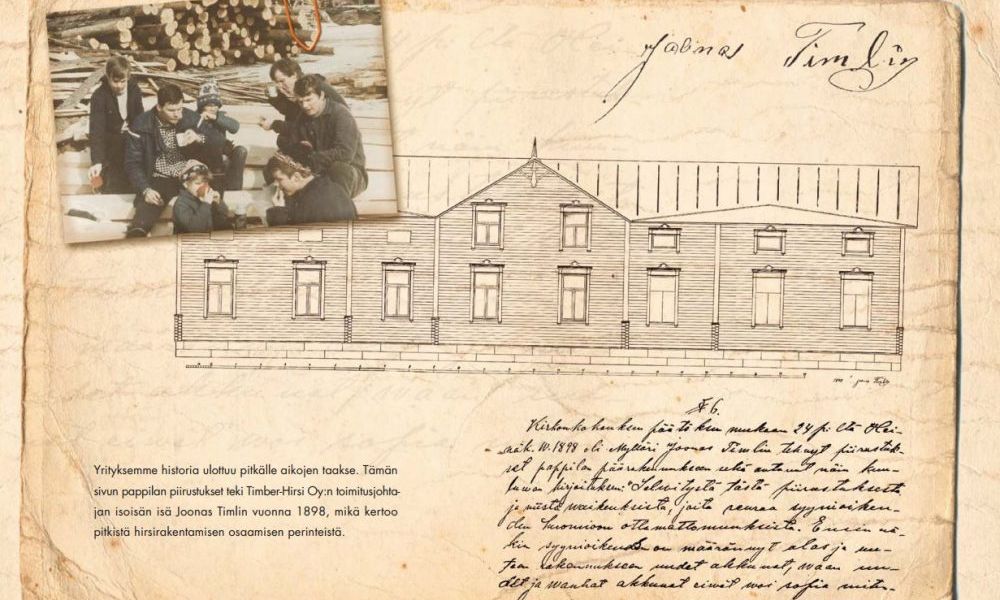 Joonas Timlin
Yrityksemme historia ulottuu pitkälle aikojen taakse. Tämän
sivun pappilan piirustukset teki Timber-Hirsi Oy:n toimitusjohta-
jan isoisän isä Joonas Timlin vuonna 1898, mikä kertoo
pitkistä hirsirakentamisen osaamisen perinteistä.
§ 6.
Kirkonkokouksen päätöksen mukaan 24 p:ltä
W. 1898 oli Mylläri Joonas Timlin tehnyt piirustuk-
set pappilan päärakennukseen sekä antanut näin kuu-
luwan kirjoituksen: "Selwitystä tästä piirustuksesta
ja niistä waikeuksista, joita seuraa syynioikeu-
den huomioon ottamattomuuksista. Ensin nä-
kin syynioikeus on määrännyt alas ja
rakennukseen uudet akkunat, waan uu-
det ja wanhat akkunat eiwät woi sopia